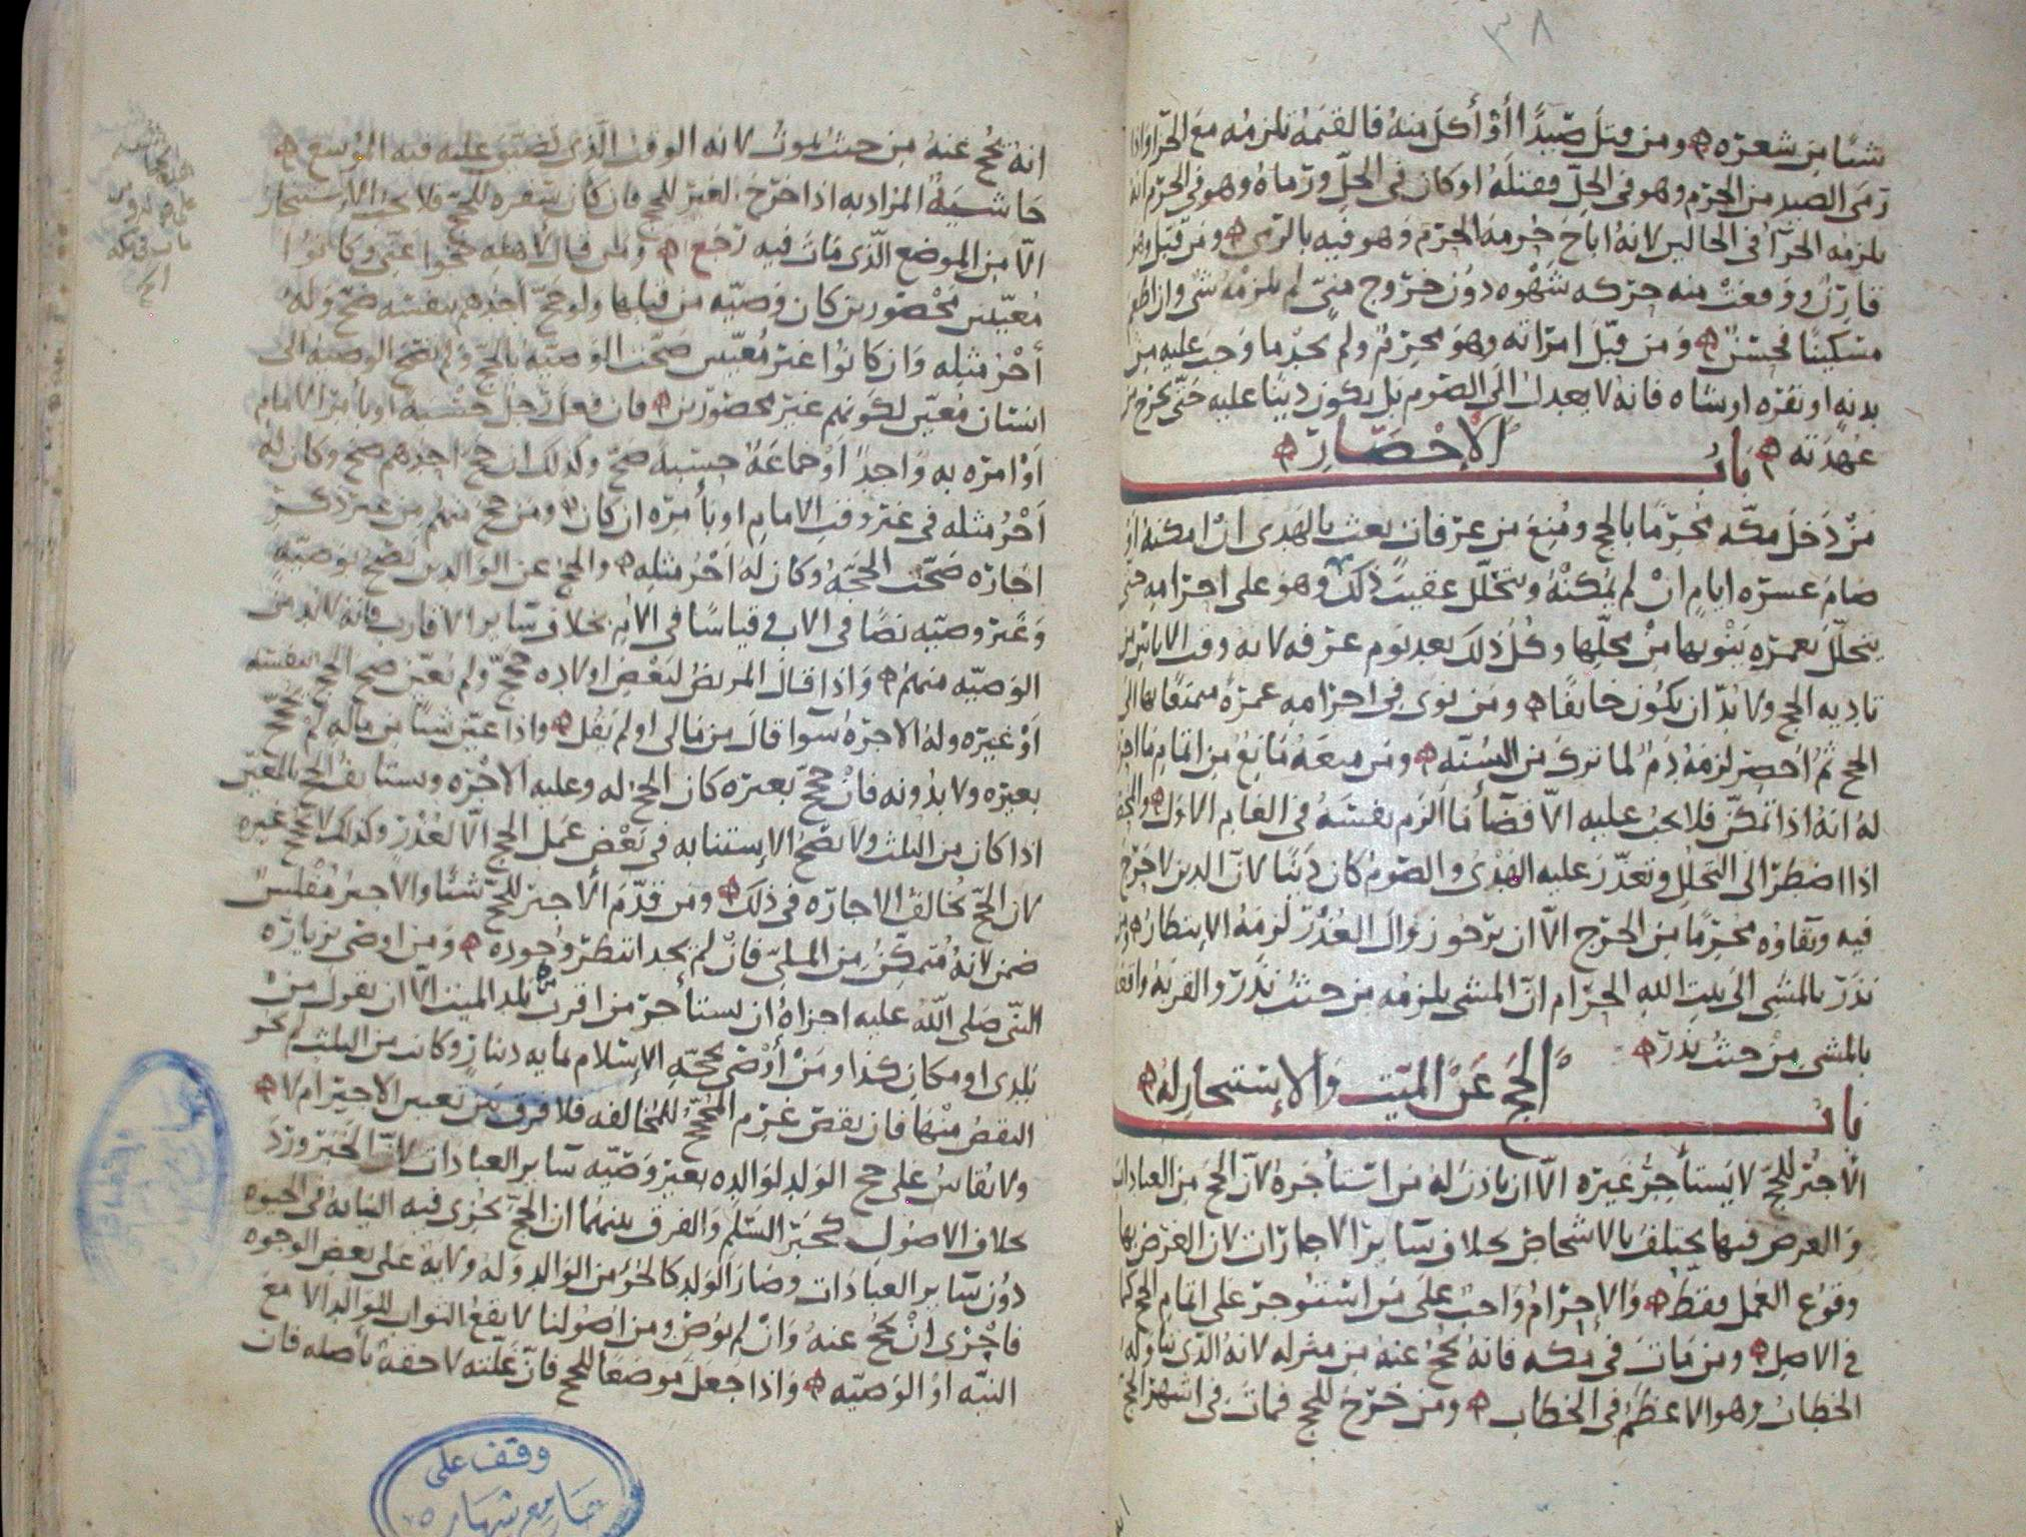 ٣٨
شيئًا من شعره ومن قتل صيدًا أو أكل منه فالقيمة تلزمه مع الجزا واذا
رمى الصيد من الحرم وهو في الحل فقتله او كان في الحل ورماه وهو في الحرم
يلزمه الجزآ في الحالين لانه اباح حرمة الحرم وهو فيه بالرمي ومن قبل
فأنزل ووقعت منه حركه شهوه دون خروج مني لم يلزمه شي وان اطعم
مسكينًا فحسن ومن قبل امراته وهو محرم ولم يجد ما وجب عليه من
بدنه او بقره او شاه فانه لا يعدل الى الصوم بل يكون دينًا عليه حتى يخرج من
عهدته باب الإحصار
من دخل مكه محرمًا بالحج ومنع من عرفات بعث بالهدى ان امكنه او
صام عشره ايام ان لم يمكنه ويتحلل عقيب ذلك وهو على احرامه حتى
يتحلل بعمره ينويها من محلها وكل ذلك بعد يوم عرفه لانه وقت الاياس من
تاديه الحج ولا بد ان يكون خائفًا ومن نوى في احرامه عمرة متمتعًا بها الى
الحج ثم أحصر لزمه دم لما ترك من السنه ومن منعه مانع من اتمام ما احرم
له انه اذا تمكن فلا يجب عليه الا قضآ ما الزم نفسه في العام الاول
اذا اضطر الى التحلل وتعذر عليه الهدى والصوم كان دينًا لان الدين لا حرج
فيه وبقاوه محرمًا من الحرج الا ان يرجو زوال العذر لزمه الانتظار
نذر بالمشي الى بيت الله الحرام ان المشي يلزمه من حيث نذر والقربه واقعه
بالمشي من حيث نذر
باب الحج عن الميت والإستئجار له
الأجير للحج لا يستأجر غيره الا ان ياذن له من استأجره لان الحج من العبادات
والغرض فيها يختلف بالاشخاص بخلاف سائر الاجارات لان الغرض بها
وقوع العمل فقط والإحرام واجب على من استؤجر على اتمام الحج كما
في الاصل ومن مات في مكه فانه يحج عنه من منزله لانه الذي تناوله
الخطاب وهو الاعظم في الخطاب ومن خرج للحج فمات في اشهر الحج
انه يحج عنه من حيث يموت لانه الوقت الذي تضيق عليه فيه الموسع
حاشية المراد به اذا خرج لغير الحج فان كان سفره للحج فلا يجب الاستئجار
الا من الموضع الذي مات فيه رجع ومن قال لأهله حجوا عني وكانوا
معينين محصورين كان وصيه من قبلها ولو حج احدهم بنفسه صح وله
أجر مثله وان كانوا غير معينين صحت الوصية بالحج ولم تصح الوصيه الى
انسان معين لكونهم غير محصورين فان فعل رجل حسبة او بأمر الامام
او امره به واحدًا او جماعة حسبة صح وكذلك ان حج احدهم صح وكان له
أجر مثله في غير وقت الامام او بأمره ان كان ومن حج منهم من غير ذكر
اجاره صحت الحجة وكان له اجر مثله والحج عن الوالدين يصح بوصيه
وغير وصيه نصًا في الاب وقياسًا في الام بخلاف سائر الاقارب فانه لا بد من
الوصيه منهم واذا قال المريض لبعض اولاده حج ولم يعين صح الحج بنفسه
او غيره وله الاجره سوا قال من مالى او لم يقل واذا عين شيئًا من ماله لم يحج
بغيره ولا بدونه فان حج بغيره كان الحج له وعليه الأجره ويستانف الحج بالمعين
اذا كان من الثلث ولا تصح الاستنابه في بعض عمل الحج الا لعذر وكذلك لا يحج غيره
لان الحج يخالف الاجاره في ذلك ومن قدم الأجير للحج شيئًا والاجير مفلس
ضمن لانه متمكن من الملي فان لم يجد انتظر وجوده ومن اوصى بزياره
النبي صلى الله عليه اجزاه ان يستأجر من اقرب بلد الميت الا ان يقول من
بلدى او مكان كذا ومن أوصى بحجه الإسلام بمايه دينار وكانت من الثلث لم يجز
النقص منها فان نقص غرم المحجج للمخالفه فلا فرق بين تعيين الاجير ام لا
ولا يقاس على حج الولد لوالده بغير وصيه سائر العبادات لان الخبر ورد
بخلاف الاصول كخبر السلم والفرق بينهما ان الحج يجزى فيه النيابه في الحيوه
دون سائر العبادات وصار الولد كالجزء من الوالد وله ولايه على بعض الوجوه
فأجزى ان يحج عنه وان لم يوص ومن اصولنا لا يقع الثواب للوالد الا مع
النيه او الوصيه واذا جعل موضعًا للحج فان غلته لاحقة بأصله فان
وقف على
جامع شهاره